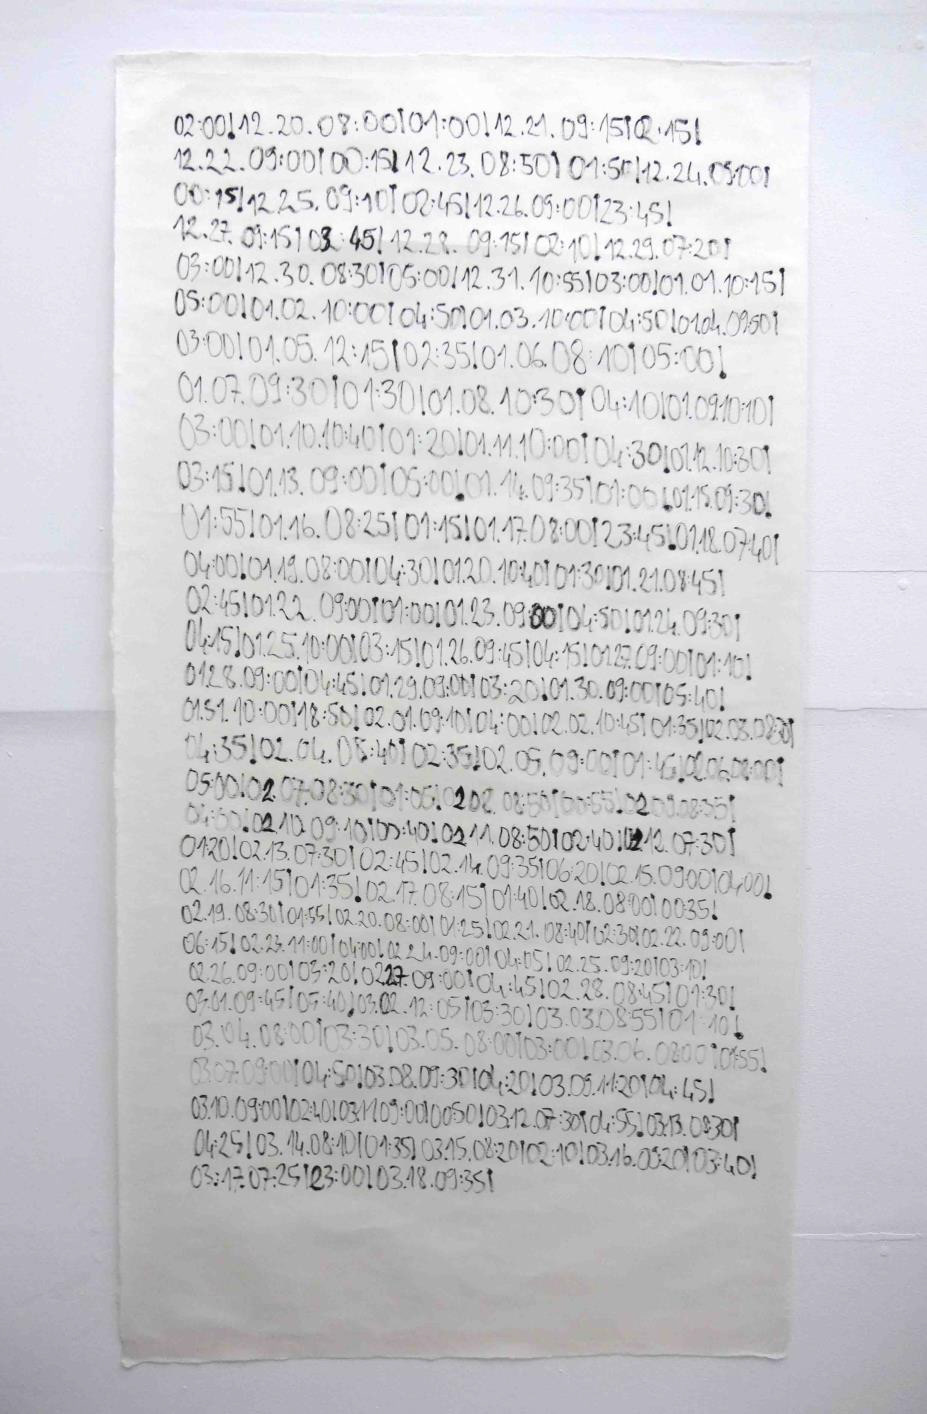 02:00!12.20.08:00¡01:00!12.21.09:15¡02:15!
12.22.09:00¡00:15!12.23.08:50¡01:50!12.24.09:00¡
00:15!12.25.09:10¡02:45!12.26.09:00¡23:45!
12.27.09:15¡03:45!12.28.09:15¡02:10!12.29.07:20¡
03:00!12.30.08:30¡05:00!12.31.10:55¡03:00!01.01.10:15¡
05:00!01.02.10:00¡04:50!01.03.10:00¡04:50!01.04.09:50¡
03:00!01.05.12:15¡02:35!01.06.08:10¡05:00!
01.07.09:30¡01:30!01.08.10:30¡04:10!01.09.10:10¡
03:00!01.10.10:40¡01:20!01.11.10:00¡04:30!01.12.10:30¡
03:15!01.13.09:00¡05:00!01.14.09:35¡01:00!01.15.09:30!
01:55!01.16.08:25¡01:15!01.17.08:00¡23:45!01.18.07:40¡
04:00!01.19.08:00¡04:30!01.20.10:40¡01:30!01.21.08:45¡
02:45!01.22.09:00¡01:00!01.23.09:00¡04:50!01.24.09:30¡
04:15!01.25.10:00¡03:15!01.26.09:45¡04:15!01.27.09:00¡01:10!
01.28.09:00¡04:45!01.29.09:00¡03:20!01.30.09:00¡05:40!
01.31.10:00¡18:50!02.01.09:10¡04:00!02.02.10:45¡01:35!02.03.08:30¡
04:35!02.04.08:40¡02:35!02.05.09:00¡01:45!02.06.08:00¡
05:00!02.07.08:30¡01:05!02.08.08:50¡00:55!02.09.08:35¡
02.10.09:10¡00:40!02.11.08:50¡02:40!02.12.07:30¡
01:20!02.13.07:30¡02:45!02.14.09:35¡06:20!02.15.09:00¡04:00!
02.16.11:15¡01:35!02.17.08:15¡01:40!02.18.08:00¡00:35!
02.19.08:30¡01:55!02.20.08:00¡01:25!02.21.08:40¡02:30!02.22.09:00¡
06:15!02.23.11:00¡04:00!02.24.09:00¡04:05!02.25.09:20¡03:10!
02.26.09:00¡03:20!02.27.09:00¡04:45!02.28.08:45¡01:30!
03.01.09:45¡05:40!03.02.12:05¡03:30!03.03.08:55¡01:10!
03.04.08:00¡03:30!03.05.08:00¡03:00!03.06.08:00¡01:55!
03.07.09:00¡04:50!03.08.09:30¡04:20!03.09.11:20¡04:45!
03.10.09:00¡02:40!03.11.09:00¡00:50!03.12.07:30¡04:55!03.13.08:30¡
04:25!03.14.08:10¡01:35!03.15.08:20¡02:10!03.16.09:20¡03:40!
03.17.07:25¡23:00!03.18.09:35¡